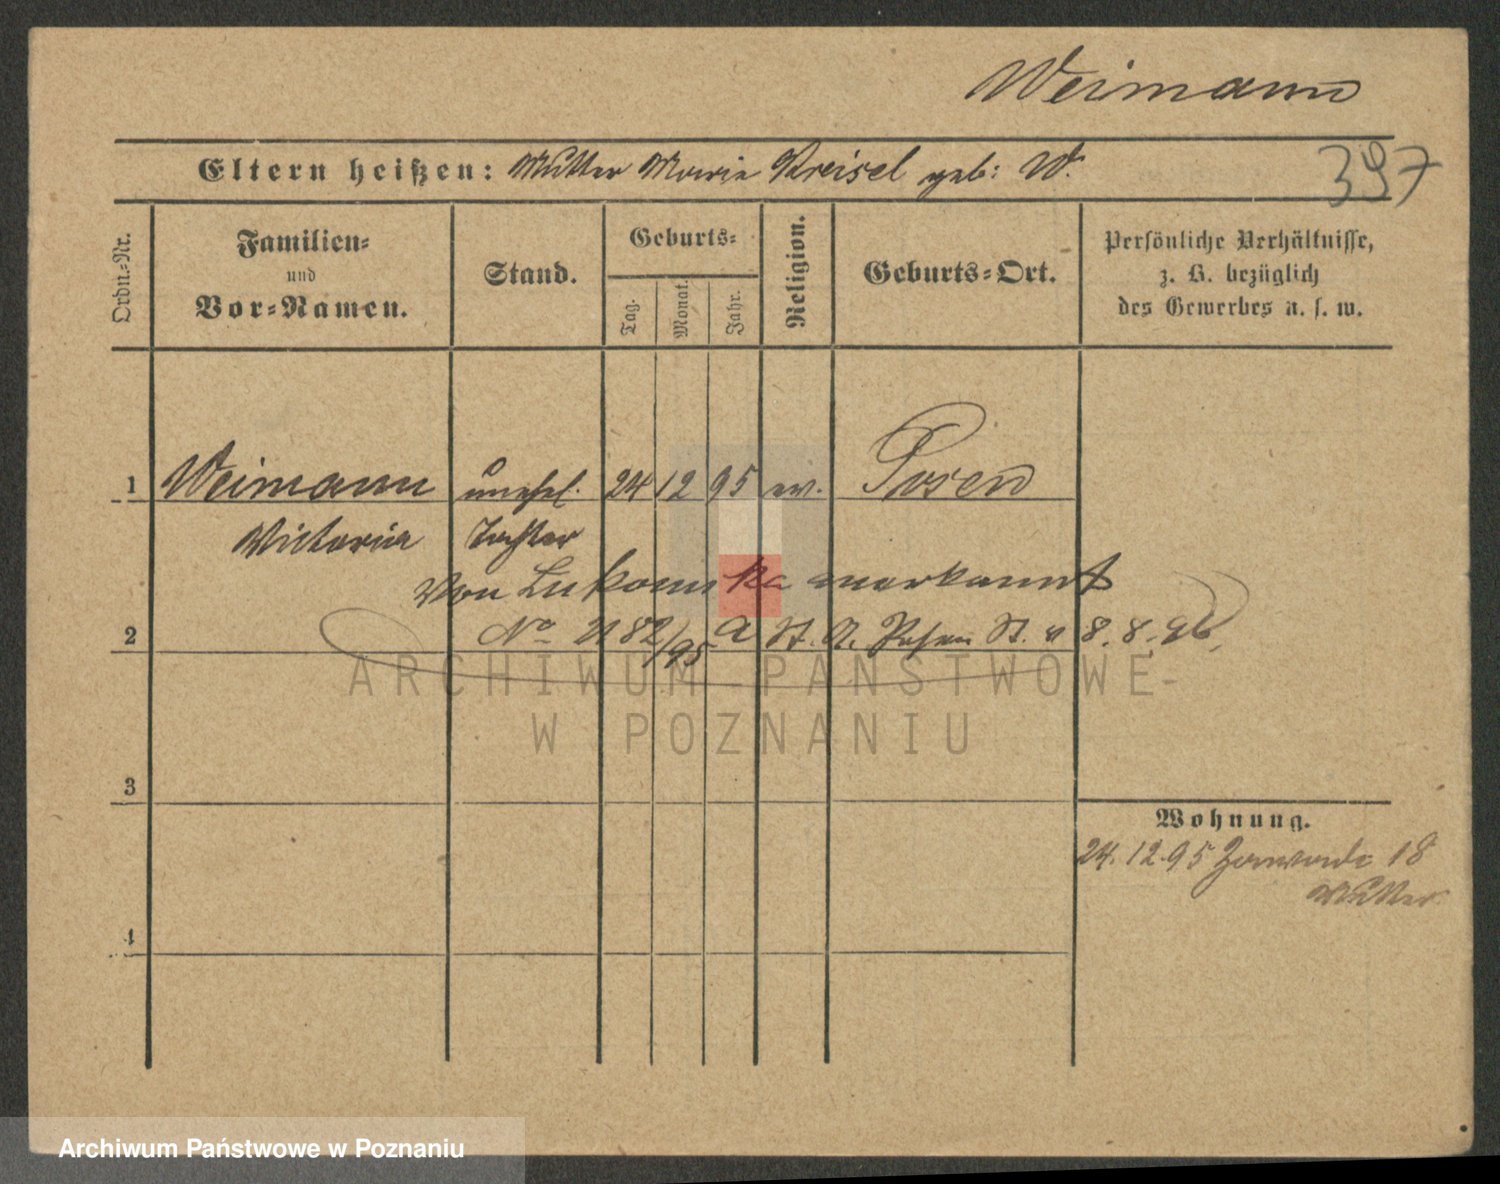 Weimann
Eltern heißen: Mutter Marie Kreisel geb: W.
397
Ordn.-Nr.
Familien-
und
Vor-Namen.
Stand.
Geburts-
Tag.
Monat.
Jahr.
Religion.
Geburts-Ort.
Persönliche Verhältnisse,
z. B. bezüglich
des Gewerbes u. s. w.
1 Weimann unehel. 24 12 95 ev. Posen
Victoria Tochter
von Lukomska anerkannt
No 2182/95 A St. A. Posen St. v 8. 8. 96.
2
3
4
Wohnung.
24. 12. 95 18
Mutter
ARCHIWUM PAŃSTWOWE
W POZNANIU
Archiwum Państwowe w Poznaniu